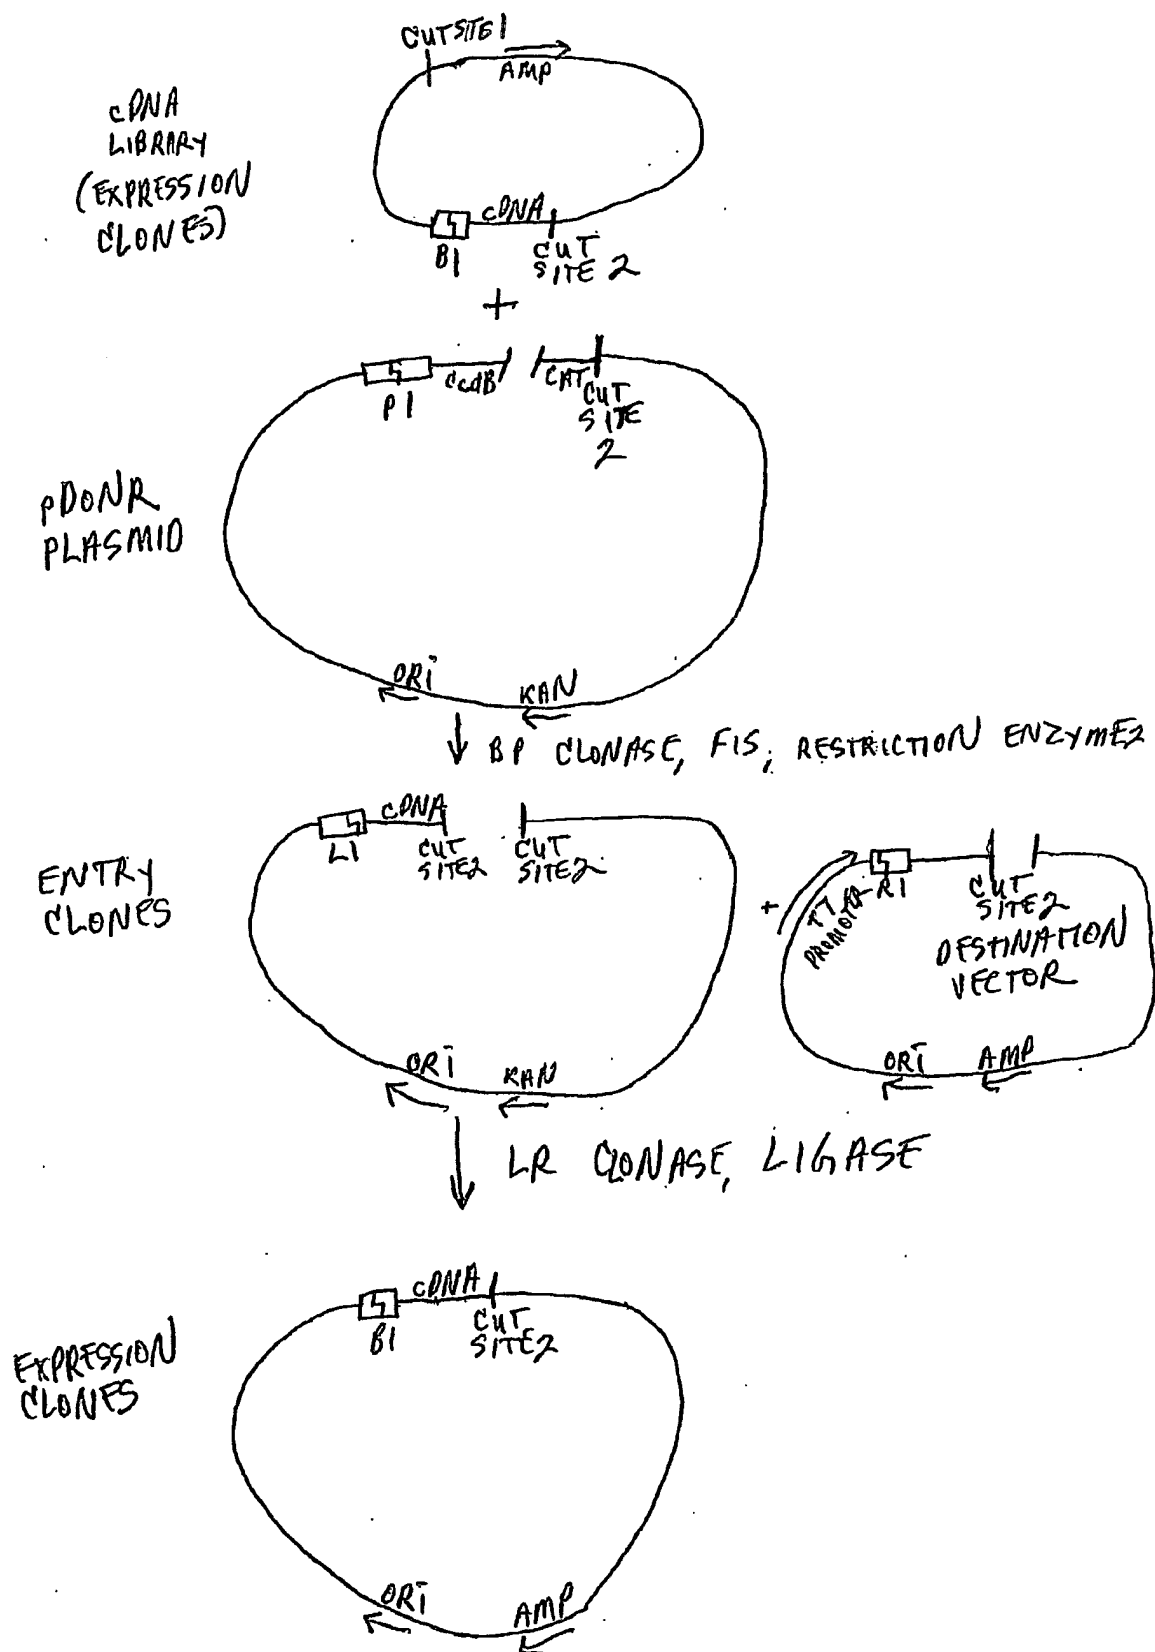 CUT SITE 1
AMP
cDNA
LIBRARY
(EXPRESSION
CLONES)
cDNA
B1
CUT
SITE 2
+
P1
CcdB
CAT
CUT
SITE
2
pDONR
PLASMID
ORI
KAN
BP CLONASE, FIS, RESTRICTION ENZYME2
ENTRY
CLONES
L1
cDNA
CUT
SITE2
CUT
SITE2
+
T7
PROMOTER
R1
CUT
SITE2
DESTINATION
VECTOR
ORI
KAN
ORI
AMP
LR CLONASE, LIGASE
EXPRESSION
CLONES
B1
cDNA
CUT
SITE2
ORI
AMP